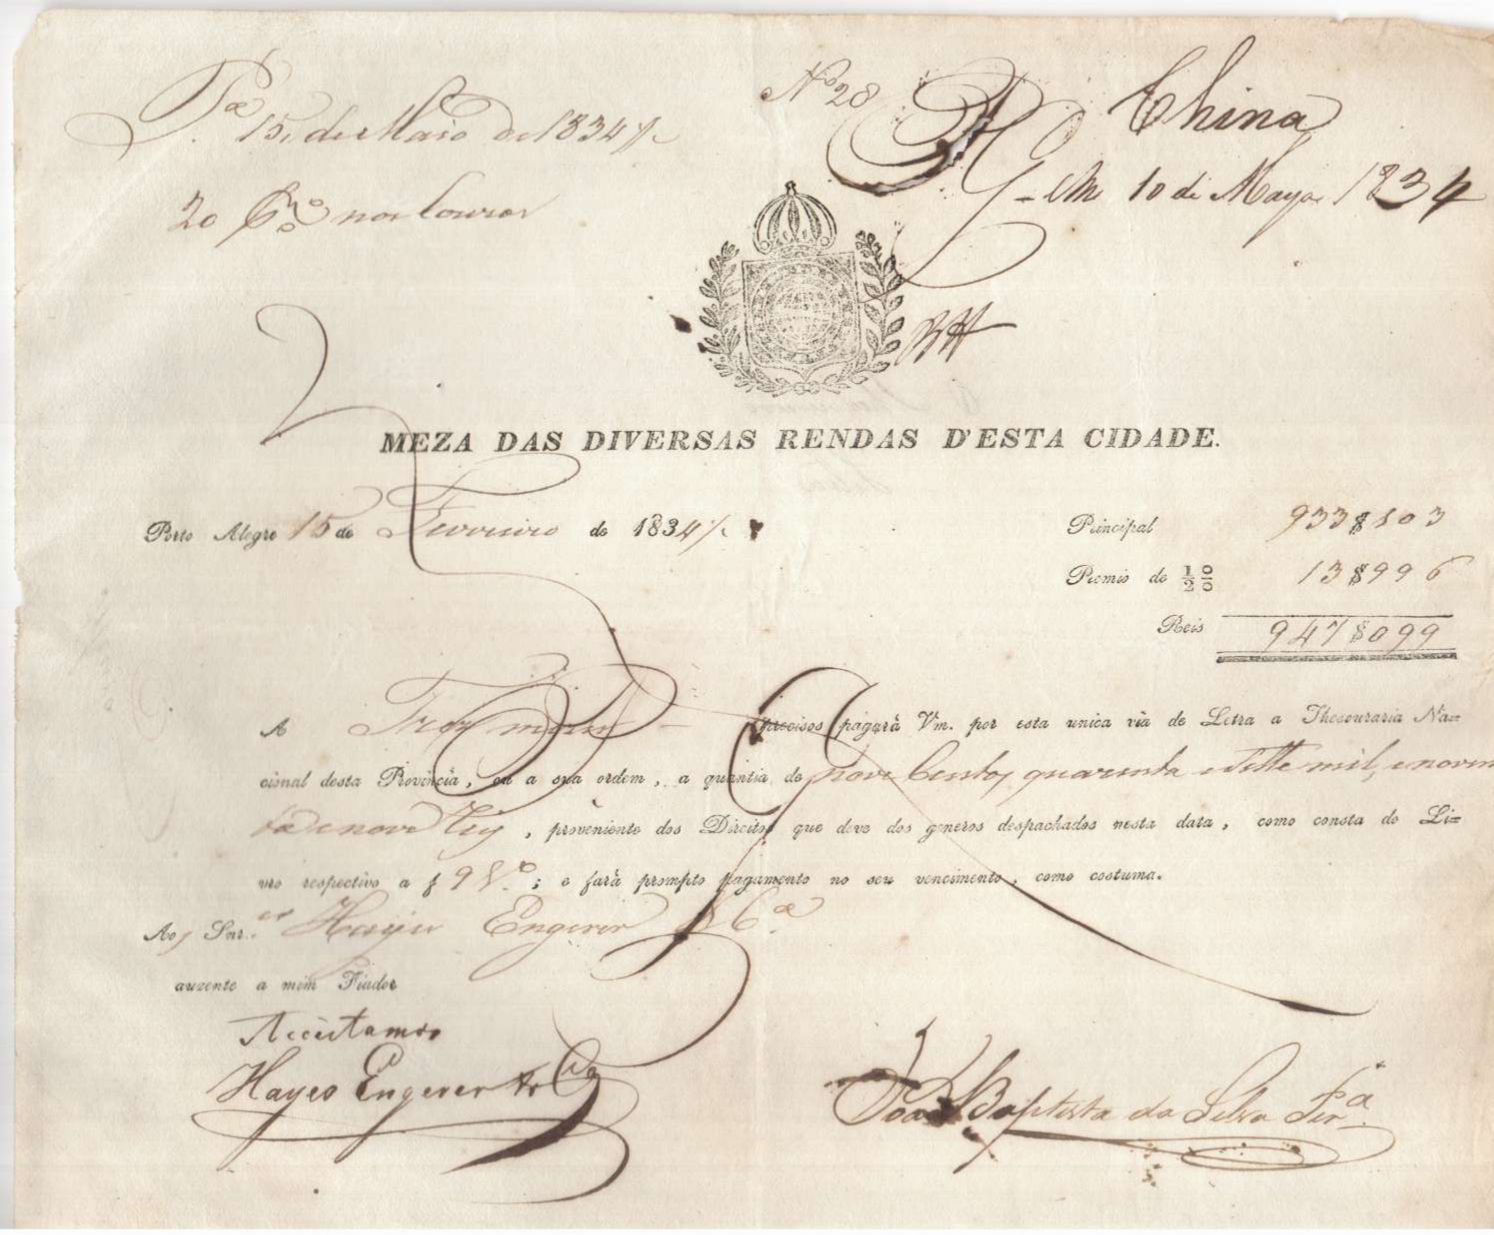 Pª 15, de Maio de 1834
Nº 28
China
em 10 de Mayo 1834
20
MEZA DAS DIVERSAS RENDAS D'ESTA CIDADE.
Porto Alegre 15 de Fevereiro de 1834
Principal 933$103
Premio de ½ % 13$996
Reis 947$099
A Trez mezes precisos pagará Vm. por esta unica via de Letra a Thesouraria Na=
cional desta Provincia, ou a sua ordem, a quantia de nove Centos, quarenta e Sette mil, e noven
ta e nove , proveniente dos Direitos que deve dos generos despachados nesta data, como consta do Li=
vro respectivo a f 9 Vº ; e fará prompto pagamento no seu vencimento, como costuma.
Aos Snr.es Hayes Engerer & Cª
auzente a mim Fiador
Acceitamos
Hayes Engerer & Ca
João Baptista da Silva Perª